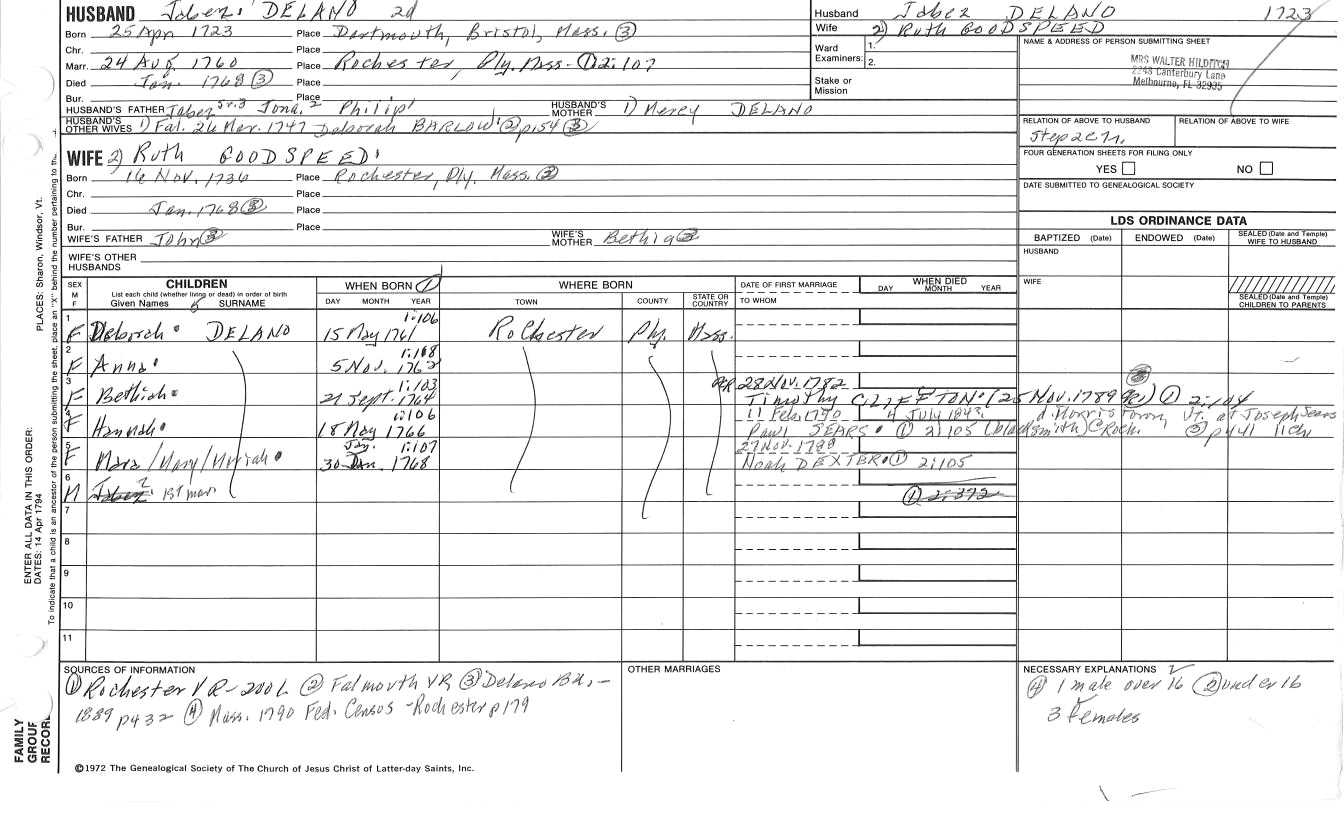 HUSBAND Jabez DELANO 2d
Born 25 Apr 1723 Place Dartmouth, Bristol, Mass. ③
Chr. Place
Marr. 24 Aug 1760 Place Rochester, Ply. Mass - ① 2:107
Died Jan. 1768 ③ Place
Bur. Place
HUSBAND'S FATHER Jabez Jona. 2 Philip 1 HUSBAND'S MOTHER 1) Mercy DELANO
HUSBAND'S OTHER WIVES 1) Fal. 26 Mar. 1747 Deborah BARLOW ② p154 ③
WIFE 2) Ruth GOODSPEED
Born 16 Nov. 1736 Place Rochester, Ply. Mass. ③
Chr. Place
Died Jan. 1768 ③ Place
Bur. Place
WIFE'S FATHER John ③ WIFE'S MOTHER Bethia ③
WIFE'S OTHER HUSBANDS
Husband Jabez DELANO 1723
Wife 2) Ruth GOODSPEED
Ward Examiners: 1.
2.
Stake or Mission
NAME & ADDRESS OF PERSON SUBMITTING SHEET
MRS WALTER HILDITCH
2248 Canterbury Lane
Melbourne, FL 32935
RELATION OF ABOVE TO HUSBAND RELATION OF ABOVE TO WIFE
FOUR GENERATION SHEETS FOR FILING ONLY
YES NO
DATE SUBMITTED TO GENEALOGICAL SOCIETY
LDS ORDINANCE DATA
BAPTIZED (Date) ENDOWED (Date) SEALED (Date and Temple) WIFE TO HUSBAND
HUSBAND
WIFE
SEALED (Date and Temple) CHILDREN TO PARENTS
SEX M F
CHILDREN
List each child (whether living or dead) in order of birth
Given Names SURNAME
WHEN BORN ①
DAY MONTH YEAR
WHERE BORN
TOWN COUNTY STATE OR COUNTRY
DATE OF FIRST MARRIAGE
TO WHOM
WHEN DIED
DAY MONTH YEAR
1 F Deborah DELANO 1:106 15 May 1761 Rochester Ply. Mass.
2 F Anna 1:103 5 Nov. 1762
3 F Bethiah 1:103 21 Sept. 1764 28 Nov. 1782
Timothy CLIFTON (25 Nov. 1789 ① 2:104
4 F Hannah 1:106 18 May 1766 11 Feb 1790 4 July 1843 d. Morristown, Vt. at Joseph Sears
Paul SEARS ① 2:105 (blacksmith) Roch. p441 11ch
5 F Mara/Mary/Moriah 1:107 Jan. 30 1768 27 Nov. 1788
Noah DEXTER ① 2:105
6 M Jabez 1st mar. ① 2:372
7
8
9
10
11
SOURCES OF INFORMATION
① Rochester VR - 200L ② Falmouth VR ③ Delano
1889 p432 ④ Mass. 1790 Fed. Census - Rochester p179
OTHER MARRIAGES
NECESSARY EXPLANATIONS
④ 1 male over 16 ② under 16
3 females
©1972 The Genealogical Society of The Church of Jesus Christ of Latter-day Saints, Inc.
FAMILY
GROUP
RECORD
ENTER ALL DATA IN THIS ORDER:
DATES: 14 Apr 1794
PLACES: Sharon, Windsor, Vt.
To indicate that a child is an ancestor of the person submitting the sheet, place an "X" behind the number pertaining to